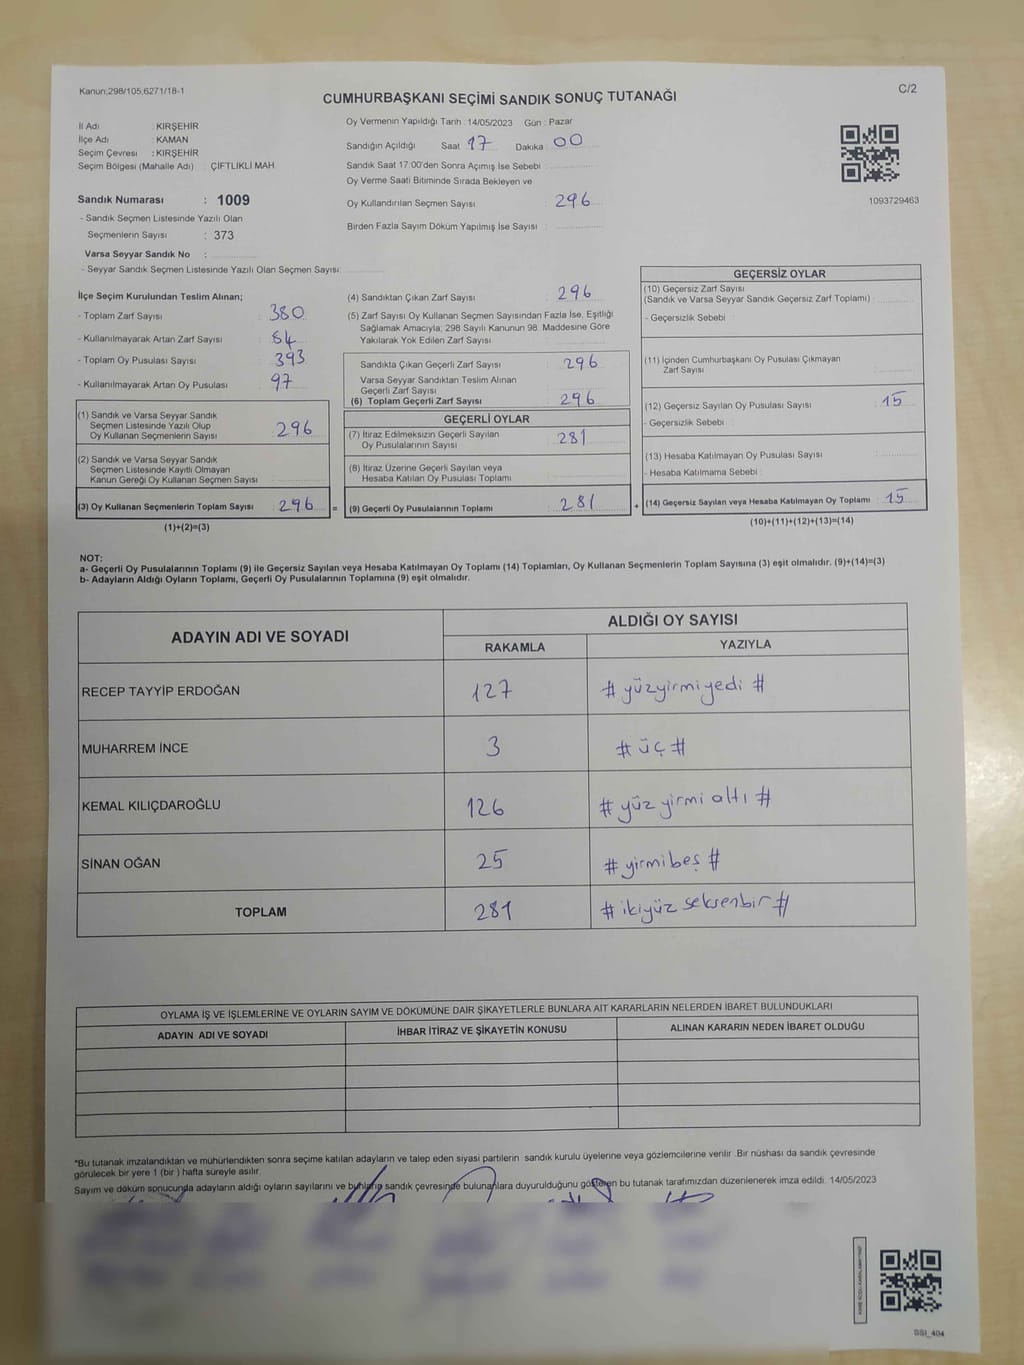 Kanun:298/105;6271/18-1
C/2
CUMHURBAŞKANI SEÇİMİ SANDIK SONUÇ TUTANAĞI
İl Adı : KIRŞEHİR
İlçe Adı : KAMAN
Seçim Çevresi : KIRŞEHİR
Seçim Bölgesi (Mahalle Adı) : ÇİFTLİKLİ MAH.
Sandık Numarası : 1009
- Sandık Seçmen Listesinde Yazılı Olan
Seçmenlerin Sayısı : 373
Varsa Seyyar Sandık No :
- Seyyar Sandık Seçmen Listesinde Yazılı Olan Seçmen Sayısı:
Oy Vermenin Yapıldığı Tarih : 14/05/2023 Gün : Pazar
Sandığın Açıldığı Saat 17 Dakika 00
Sandık Saat 17:00'den Sonra Açımış İse Sebebi :
Oy Verme Saati Bitiminde Sırada Bekleyen ve
Oy Kullandırılan Seçmen Sayısı : 296
Birden Fazla Sayım Döküm Yapılmış İse Sayısı :
1093729463
İlçe Seçim Kurulundan Teslim Alınan;
- Toplam Zarf Sayısı : 380
- Kullanılmayarak Artan Zarf Sayısı : 84
- Toplam Oy Pusulası Sayısı : 393
- Kullanılmayarak Artan Oy Pusulası : 97
(1) Sandık ve Varsa Seyyar Sandık
Seçmen Listesinde Yazılı Olup
Oy Kullanan Seçmenlerin Sayısı : 296
(2) Sandık ve Varsa Seyyar Sandık
Seçmen Listesinde Kayıtlı Olmayan
Kanun Gereği Oy Kullanan Seçmen Sayısı :
(3) Oy Kullanan Seçmenlerin Toplam Sayısı : 296 =
(1)+(2)=(3)
(4) Sandıktan Çıkan Zarf Sayısı : 296
(5) Zarf Sayısı Oy Kullanan Seçmen Sayısından Fazla İse, Eşitliği
Sağlamak Amacıyla; 298 Sayılı Kanunun 98. Maddesine Göre
Yakılarak Yok Edilen Zarf Sayısı :
Sandıkta Çıkan Geçerli Zarf Sayısı : 296
Varsa Seyyar Sandıktan Teslim Alınan
Geçerli Zarf Sayısı
(6) Toplam Geçerli Zarf Sayısı : 296
GEÇERLİ OYLAR
(7) İtiraz Edilmeksizin Geçerli Sayılan
Oy Pusulalarının Sayısı : 281
(8) İtiraz Üzerine Geçerli Sayılan veya
Hesaba Katılan Oy Pusulası Toplamı
(9) Geçerli Oy Pusulalarının Toplamı : 281 +
GEÇERSİZ OYLAR
(10) Geçersiz Zarf Sayısı
(Sandık ve Varsa Seyyar Sandık Geçersiz Zarf Toplamı) :
- Geçersizlik Sebebi :
(11) İçinden Cumhurbaşkanı Oy Pusulası Çıkmayan
Zarf Sayısı
(12) Geçersiz Sayılan Oy Pusulası Sayısı : 15
- Geçersizlik Sebebi :
(13) Hesaba Katılmayan Oy Pusulası Sayısı
- Hesaba Katılmama Sebebi :
(14) Geçersiz Sayılan veya Hesaba Katılmayan Oy Toplamı : 15
(10)+(11)+(12)+(13)=(14)
NOT:
a- Geçerli Oy Pusulalarının Toplamı (9) ile Geçersiz Sayılan veya Hesaba Katılmayan Oy Toplamı (14) Toplamları, Oy Kullanan Seçmenlerin Toplam Sayısına (3) eşit olmalıdır. (9)+(14)=(3)
b- Adayların Aldığı Oyların Toplamı, Geçerli Oy Pusulalarının Toplamına (9) eşit olmalıdır.
ADAYIN ADI VE SOYADI ALDIĞI OY SAYISI
RAKAMLA YAZIYLA
RECEP TAYYİP ERDOĞAN 127 # yüzyirmiyedi #
MUHARREM İNCE 3 # üç #
KEMAL KILIÇDAROĞLU 126 # yüz yirmi altı #
SİNAN OĞAN 25 # yirmibeş #
TOPLAM 281 # ikiyüz seksenbir #
OYLAMA İŞ VE İŞLEMLERİNE VE OYLARIN SAYIM VE DÖKÜMÜNE DAİR ŞİKAYETLERLE BUNLARA AİT KARARLARIN NELERDEN İBARET BULUNDUKLARI
ADAYIN ADI VE SOYADI İHBAR İTİRAZ VE ŞİKAYETİN KONUSU ALINAN KARARIN NEDEN İBARET OLDUĞU
*Bu tutanak imzalandıktan ve mühürlendikten sonra seçime katılan adayların ve talep eden siyasi partilerin sandık kurulu üyelerine veya gözlemcilerine verilir. Bir nüshası da sandık çevresinde
görülecek bir yere 1 (bir ) hafta süreyle asılır.
Sayım ve döküm sonucunda adayların aldığı oyların sayılarını ve bunların sandık çevresinde bulunanlara duyurulduğunu gösteren bu tutanak tarafımızdan düzenlenerek imza edildi. 14/05/2023
SSI_404